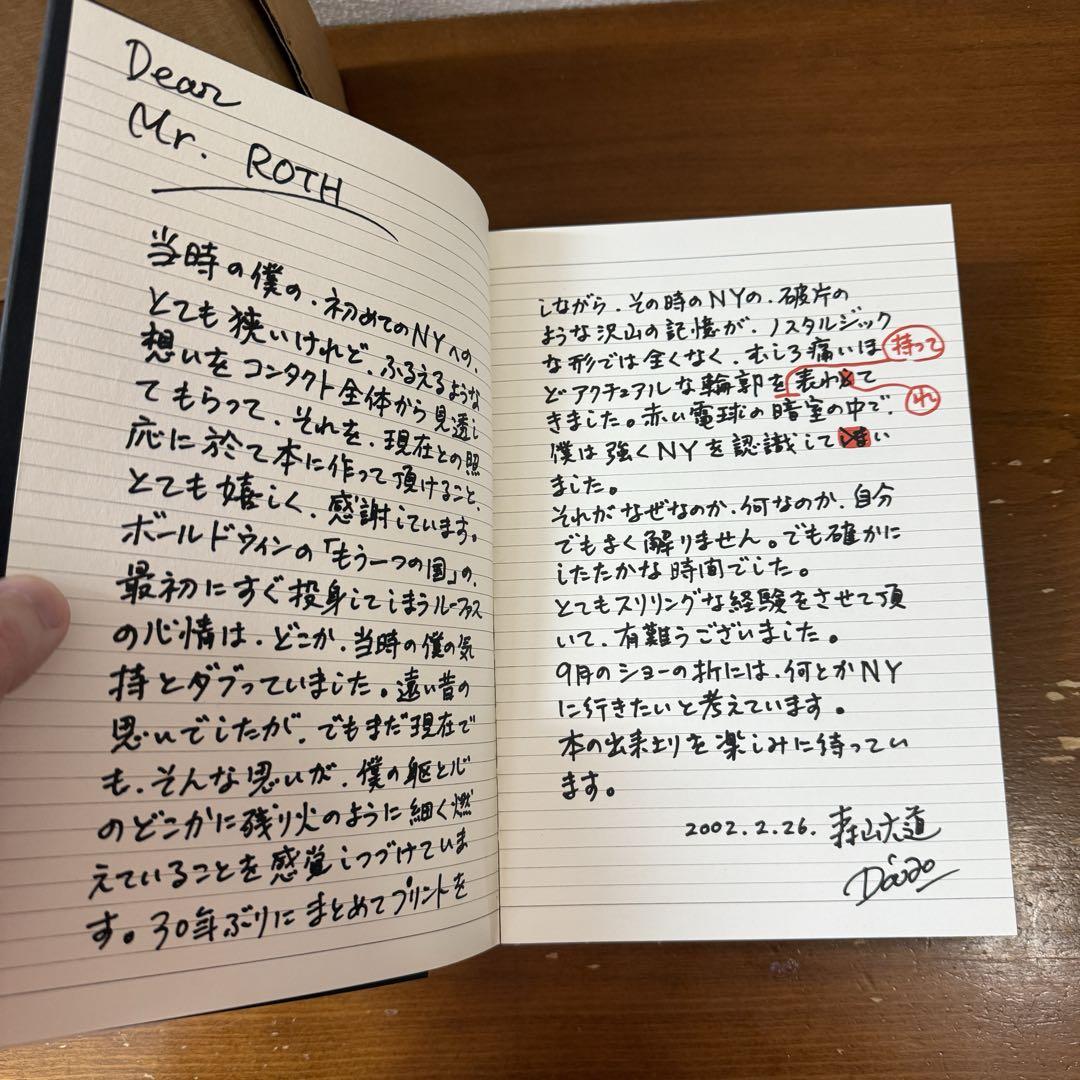 Dear
Mr. ROTH
当時の僕の、初めてのNYへの、
とても狭いけれど、ふるえるような
想いをコンタクト全体から見透し
てもらって、それを、現在との照
応に於て本に作って頂けること、
とても嬉しく、感謝しています。
ボールドウィンの「もう一つの国」の、
最初にすぐ投身してしまうルーファス
の心情は、どこか、当時の僕の気
持とダブっていました。遠い昔の
思いでしたが、でもまだ現在で
も、そんな思いが、僕の躯と心
のどこかに残り火のように細く燃
えていることを感覚しつづけていま
す。30年ぶりにまとめてプリントを
しながら、その時のNYの、破片の
ような沢山の記憶が、ノスタルジック
な形では全くなく、むしろ痛いほ 持って
どアクチュアルな輪郭を表わて
きました。赤い電球の暗室の中で、 れ
僕は強くNYを認識してい
ました。
それがなぜなのか、何なのか、自分
でもよく解りません。でも確かに
したたかな時間でした。
とてもスリリングな経験をさせて頂
いて、有難うございました。
9月のショーの折には、何とかNY
に行きたいと考えています。
本の出来上りを楽しみに待ってい
ます。
2002.2.26. 森山大道
Daido